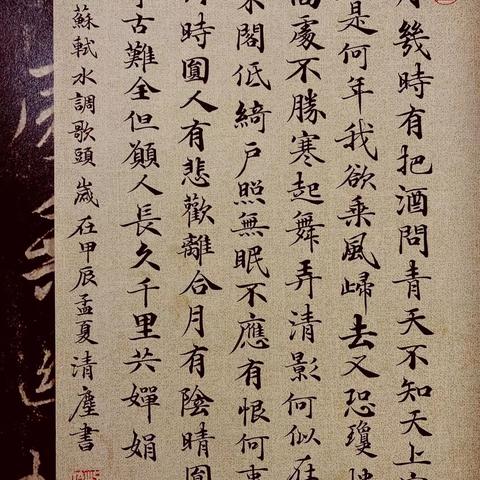 月幾時有把酒問青天不知天上宮
是何年我欲乘風歸去又恐瓊
高處不勝寒起舞弄清影何似在
朱閣低綺戶照無眠不應有恨何事
時圓人有悲歡離合月有陰晴圓
古難全但願人長久千里共嬋娟
蘇軾水調歌頭 歲在甲辰孟夏清塵書